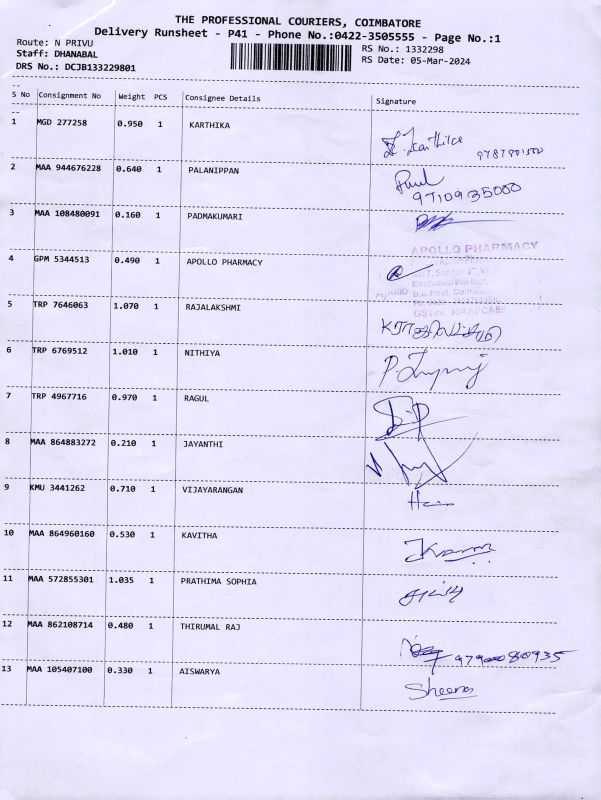 THE PROFESSIONAL COURIERS, COIMBATORE
Delivery Runsheet - P41 - Phone No.:0422-3505555 - Page No.:1
Route: N PRIVU
RS No.: 1332298
Staff: DHANABAL
RS Date: 05-Mar-2024
DRS No.: DCJB133229801
S No Consignment No Weight PCS Consignee Details Signature
1 MGD 277258 0.950 1 KARTHIKA
2 MAA 944676228 0.640 1 PALANIPPAN
9710935000
3 MAA 108480091 0.160 1 PADMAKUMARI
APOLLO PHARMACY
4 GPM 5344513 0.490 1 APOLLO PHARMACY
5 TRP 7646063 1.070 1 RAJALAKSHMI
6 TRP 6769512 1.010 1 NITHIYA
7 TRP 4967716 0.970 1 RAGUL
8 MAA 864883272 0.210 1 JAYANTHI
9 KMU 3441262 0.710 1 VIJAYARANGAN
10 MAA 864960160 0.530 1 KAVITHA
11 MAA 572855301 1.035 1 PRATHIMA SOPHIA
12 MAA 862108714 0.480 1 THIRUMAL RAJ
13 MAA 105407100 0.330 1 AISWARYA
Sheena